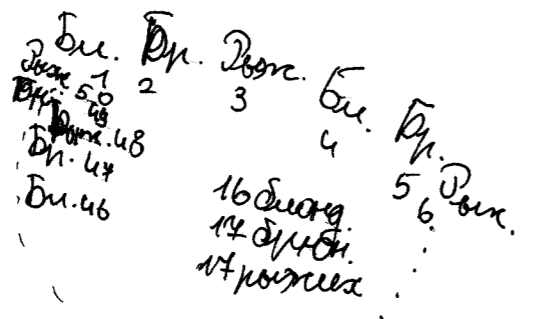 Бл. Бр. Рыж. Бл. Бр. Рыж.
1 2 3 4 5 6
Рыж 50
49
Рыж. 48
Бр. 47
Бл. 46
16 блонд.
17 брюн.
17 рыжих